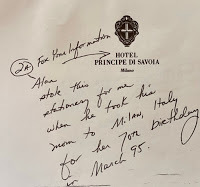 2A For Your Information
HOTEL
PRINCIPE DI SAVOIA
Milano
Alan
stole this
stationery for me
when he took his
mom to Milan, Italy
for her 70th birthday
in March 95.